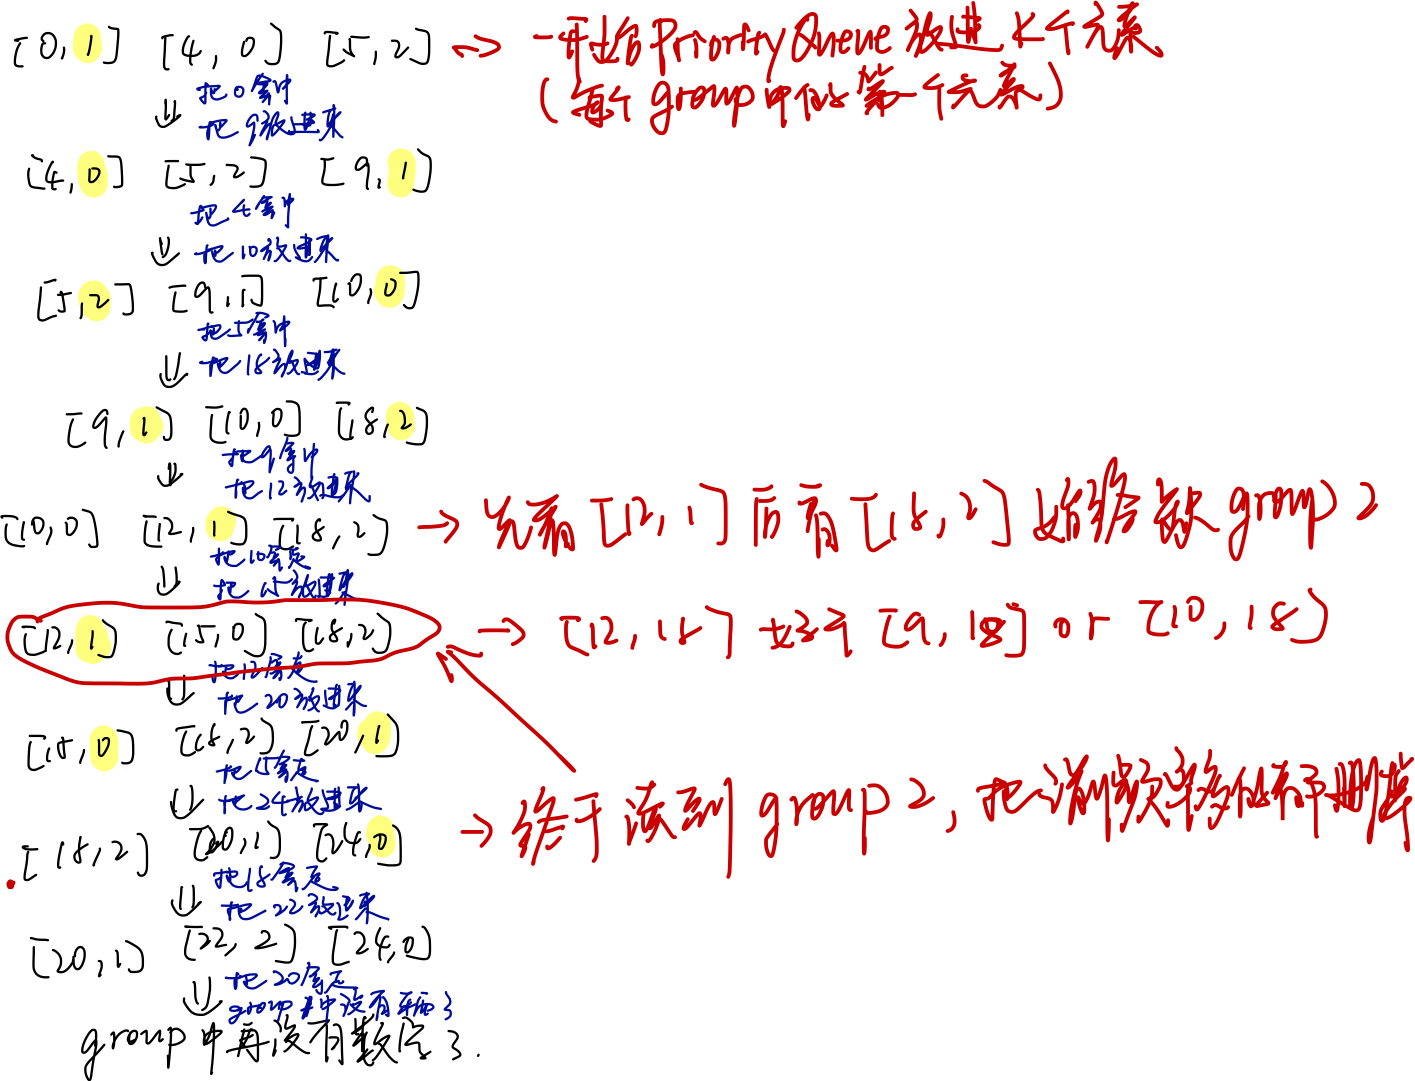 [0, 1] [4, 0] [5, 2] → 一开始 Priority Queue 放进 K个元素
(每个 group 中的第一个元素)
⇓ 把0拿中
把9放进来
[4, 0] [5, 2] [9, 1]
⇓ 把4拿中
把10放进来
[5, 2] [9, 1] [10, 0]
⇓ 把5拿中
把18放进来
[9, 1] [10, 0] [18, 2]
⇓ 把9拿中
把12放进来
[10, 0] [12, 1] [18, 2] → 先有 [12, 1] 后有 [18, 2] 始终缺 group 2
⇓ 把10拿走
把15放进来
[12, 1] [15, 0] [18, 2] → [12, 18] 好于 [9, 18] or [10, 18]
⇓ 把12拿走
把20放进来
[15, 0] [18, 2] [20, 1]
⇓ 把15拿走
把24放进来
[18, 2] [20, 1] [24, 0] → 终于读到 group 2, 把 频率多的都删掉
⇓ 把18拿走
把22放进来
[20, 1] [22, 2] [24, 0]
⇓ 把20拿走
group 中没有了
group 中再没有数字了.